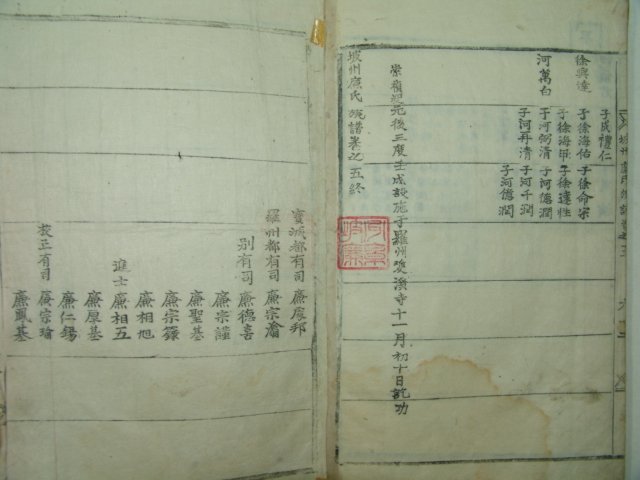 子成禮仁
徐興達 子徐海佑 子徐命宗
子徐海甲 子徐達性
河萬白 子河弼清 子河億潤
子河再清 子河千潤
子河億潤
崇禎紀元後三度壬戌設施于羅州雙溪寺十一月初十日訖功
坡州廉氏族譜卷之五終
寶城都有司 廉廈邦
羅州都有司 廉宗瀹
別有司 廉德喜
廉宗謹
廉聖基
廉宗籙
廉相旭
進士 廉相五
廉厚基
廉仁錫
校正有司 廉宗瑜
廉鳳基